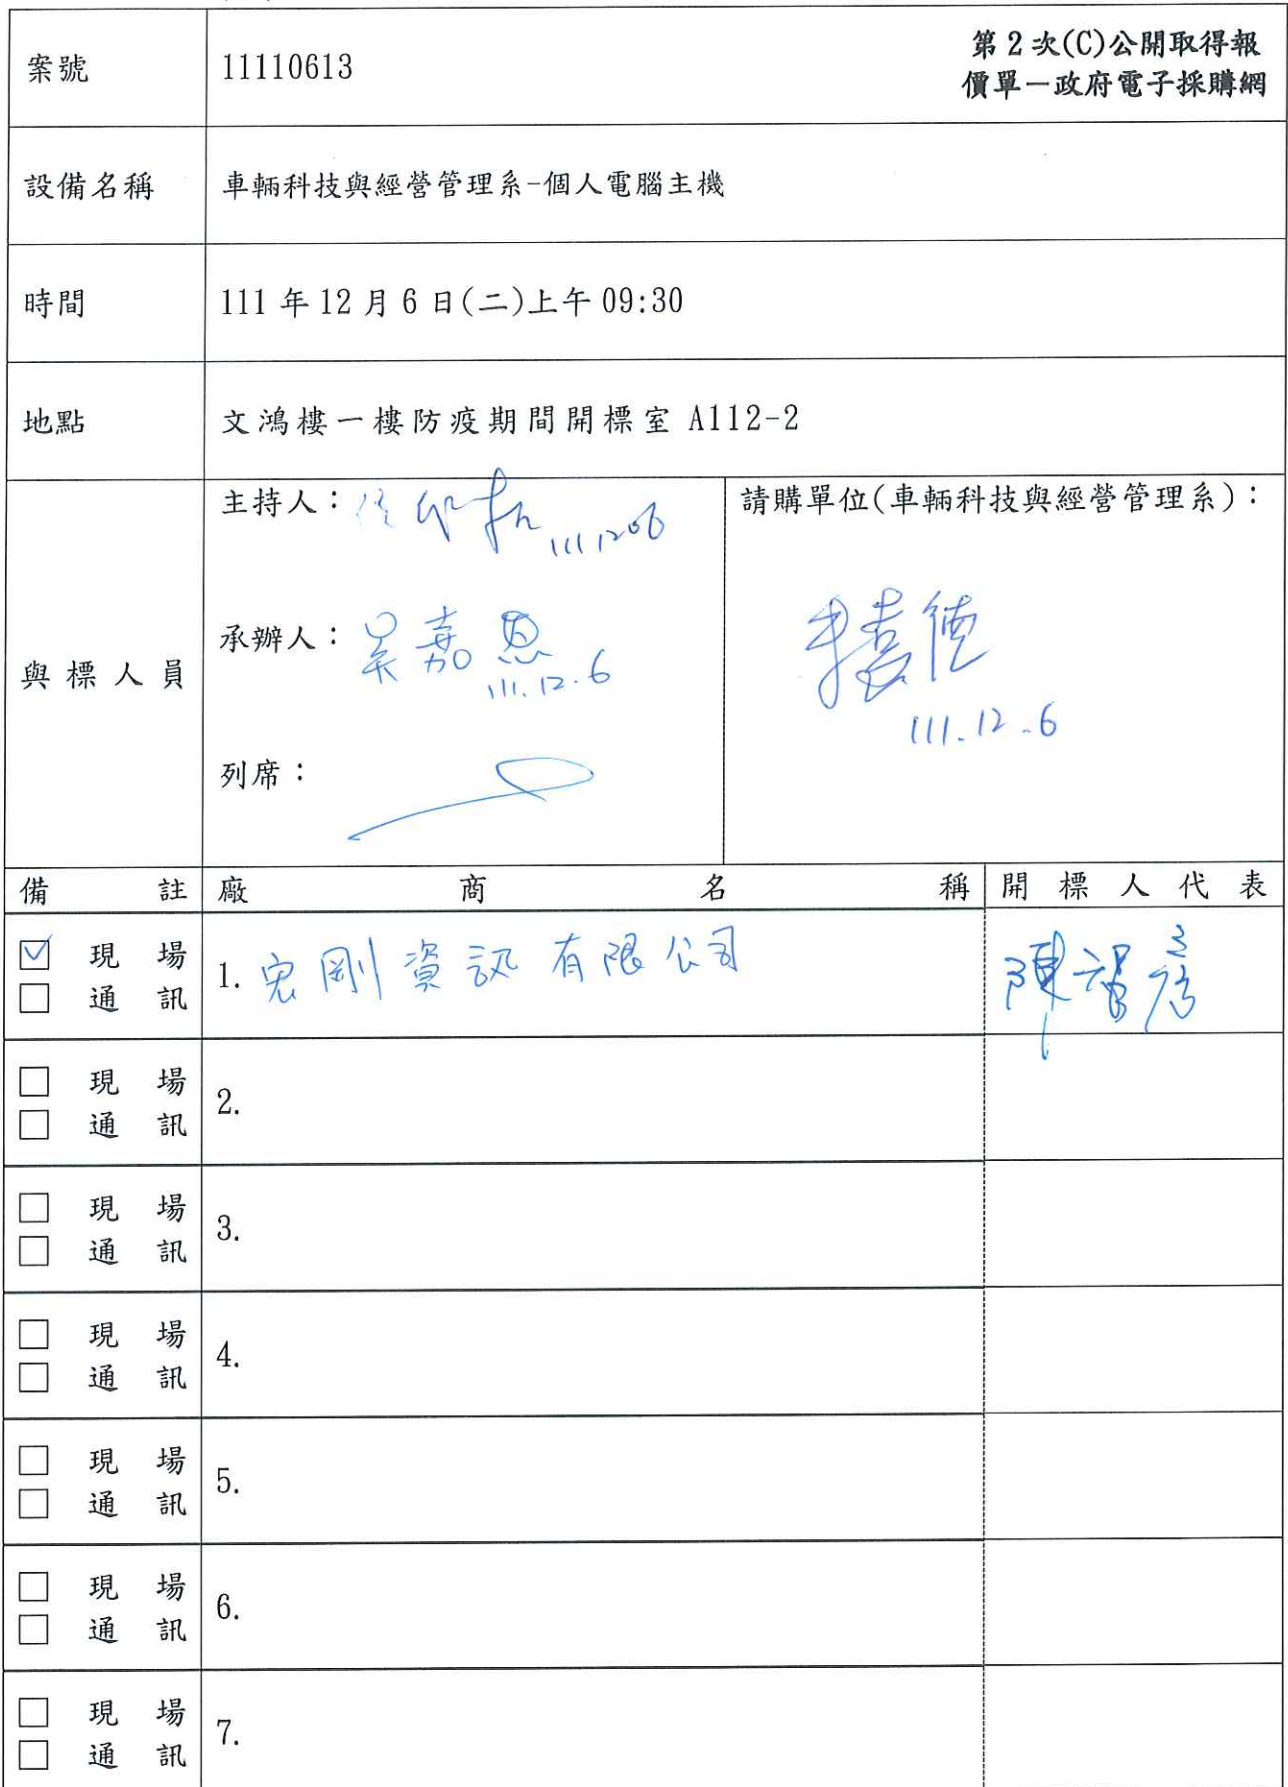 案號 11110613 第2次(C)公開取得報
價單－政府電子採購網
設備名稱 車輛科技與經營管理系-個人電腦主機
時間 111年12月6日(二)上午09:30
地點 文鴻樓一樓防疫期間開標室 A112-2
與標人員
主持人： 1111206
承辦人：吳嘉恩
111.12.6
列席：
請購單位(車輛科技與經營管理系)：
111.12.6
備註 廠商名稱 開標人代表
☑ 現場
☐ 通訊
1. 宏剛資訊有限公司 陳
☐ 現場
☐ 通訊
2.
☐ 現場
☐ 通訊
3.
☐ 現場
☐ 通訊
4.
☐ 現場
☐ 通訊
5.
☐ 現場
☐ 通訊
6.
☐ 現場
☐ 通訊
7.